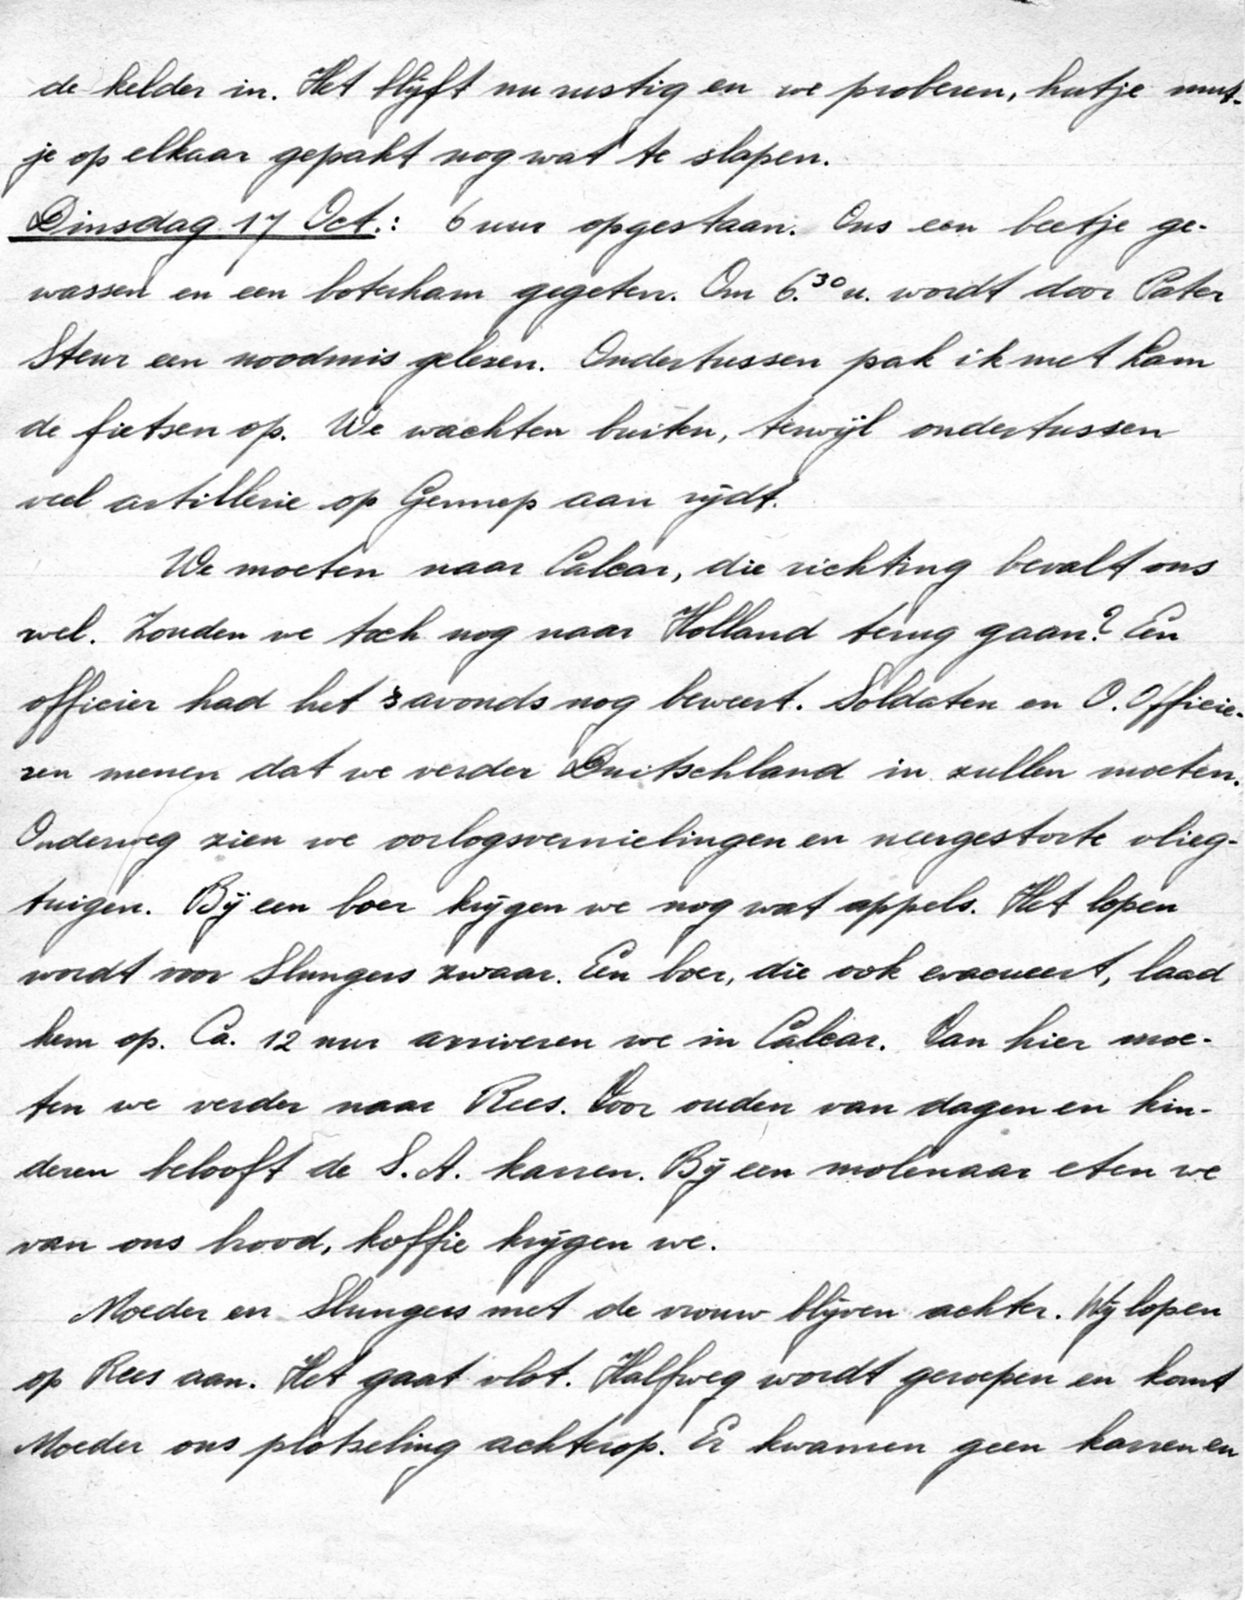 de kelder in. Het blijft nu rustig en we proberen, hutje mut-
je op elkaar gepakt nog wat te slapen.
Dinsdag 17 Oct.: 6 uur opgestaan. Ons een beetje ge-
wassen en een boterham gegeten. Om 6.30 u. wordt door Pater
Steur een noodmis gelezen. Ondertussen pak ik met Ham
de fietsen op. We wachten buiten, terwijl ondertussen
veel artillerie op Gennep aan rijdt.
We moeten naar Calcar, die richting bevalt ons
wel. Zouden we toch nog naar Holland terug gaan? Een
officier had het 's avonds nog beweert. Soldaten en O. Officie-
ren menen dat we verder Duitschland in zullen moeten.
Onderweg zien we oorlogsvernielingen en neergestorte vlieg-
tuigen. Bij een boer krijgen we nog wat appels. Het lopen
wordt voor Slungers zwaar. Een boer, die ook evacueert, laad
hem op. Ca. 12 uur arriveren we in Calcar. Van hier moe-
ten we verder naar Rees. Voor ouden van dagen en kin-
deren belooft de S.A. karren. Bij een molenaar eten we
van ons brood, koffie krijgen we.
Moeder en Slungers met de vrouw blijven achter. Wij lopen
op Rees aan. Het gaat vlot. Halfweg wordt geroepen en komt
Moeder ons plotseling achterop. Er kwamen geen karren en